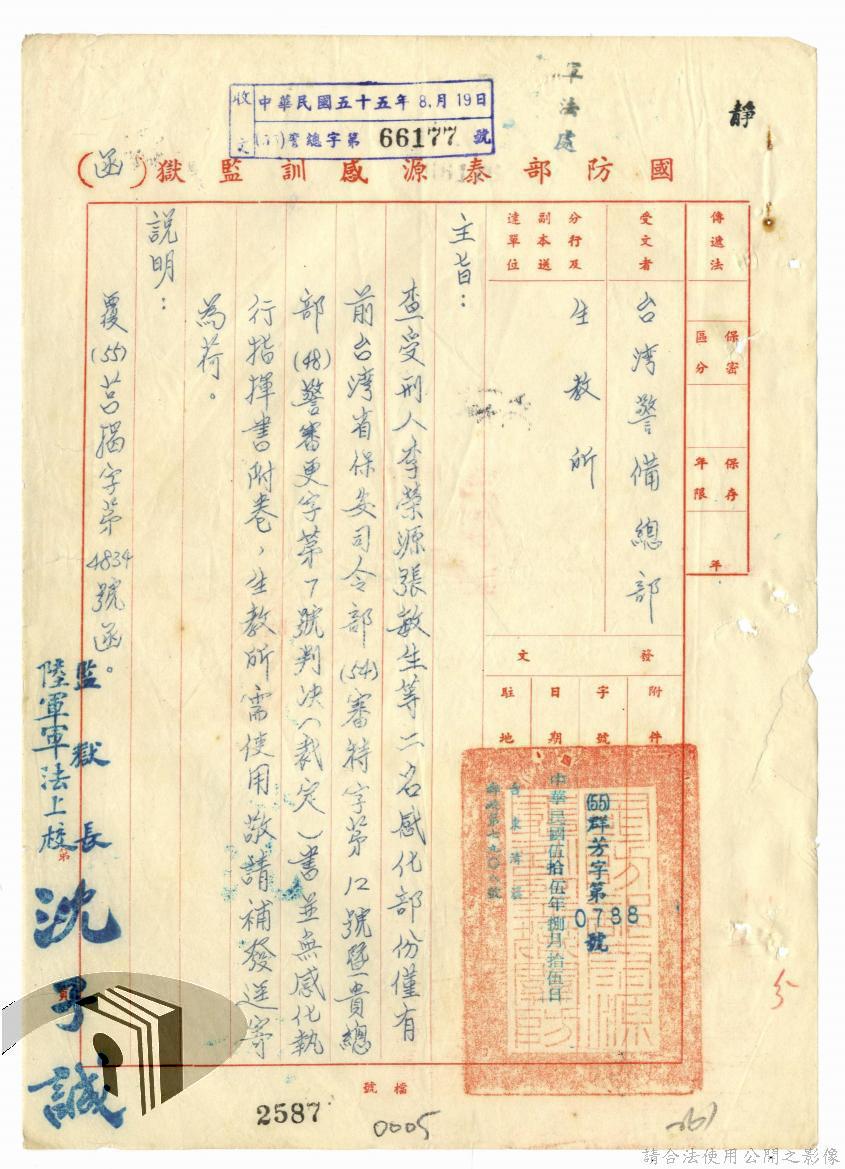 靜
軍法處
收文 中華民國五十五年8月19日
(55)警總字第66177號
國防部泰源感訓監獄(函)
傳遞法
保密區分
保存年限
年
受文者
台湾警備總部
分行及副本送達單位
生教所
發文
附件
字號
日期
駐地
(55)群芳字第0788號
中華民國伍拾伍年捌月拾伍日
主旨：
查受刑人李榮源張敏生等二名感化部份僅有
前台湾省保安司令部(54)審特字第12號暨貴總
部(48)警審更字第7號判决(裁定)書並無感化執
行指揮書附卷，生教所需使用敬請補發逕寄
為荷。
說明：
覆(55)莒揭字第4834號函。
監獄長
陸軍軍法上校
檔號
2587
0005
請合法使用公開之影像